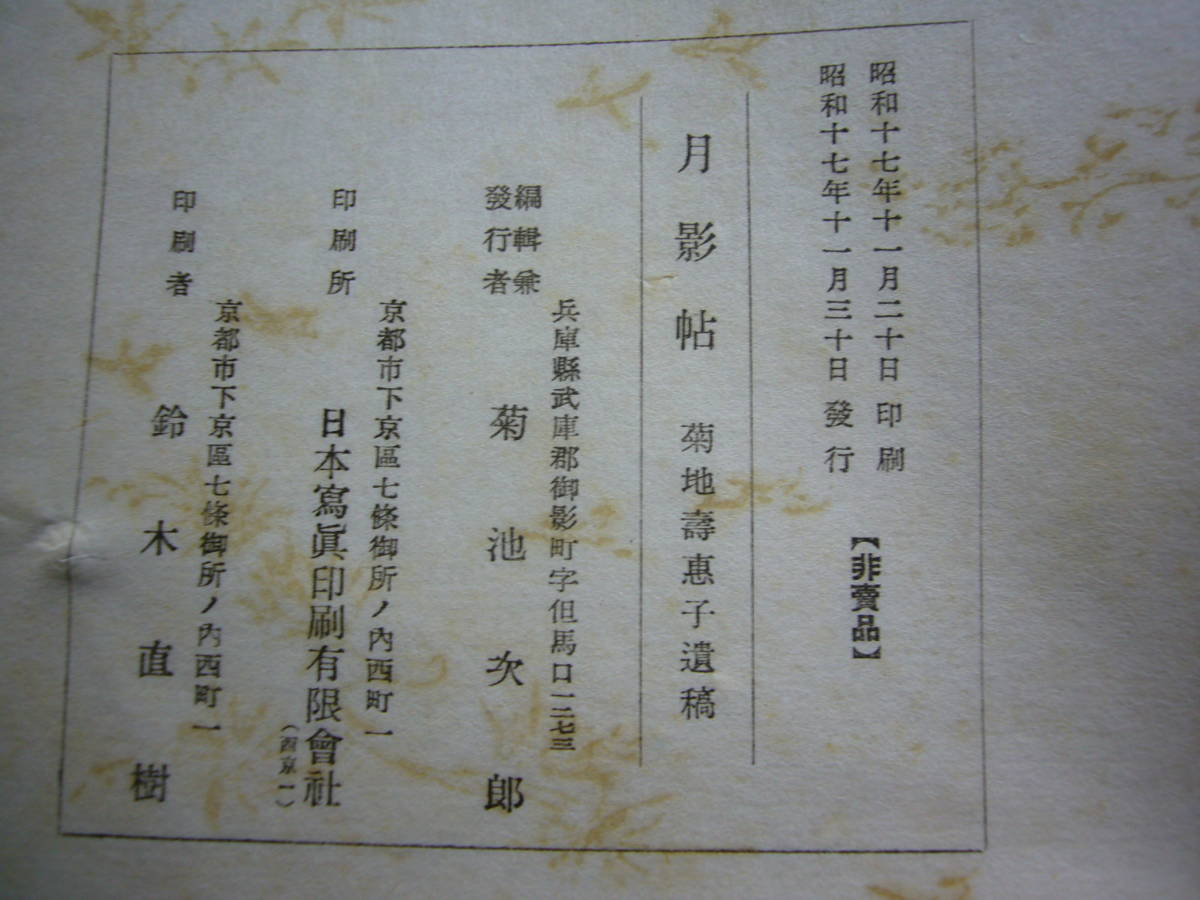 昭和十七年十一月二十日印刷
昭和十七年十一月三十日發行
【非賣品】
月影帖 菊地壽惠子遺稿
編輯兼
發行者
兵庫縣武庫郡御影町字但馬口一二七三
菊池次郎
印刷所
京都市下京區七條御所ノ內西町一
日本寫眞印刷有限會社
(西京一)
印刷者
京都市下京區七條御所ノ內西町一
鈴木直樹